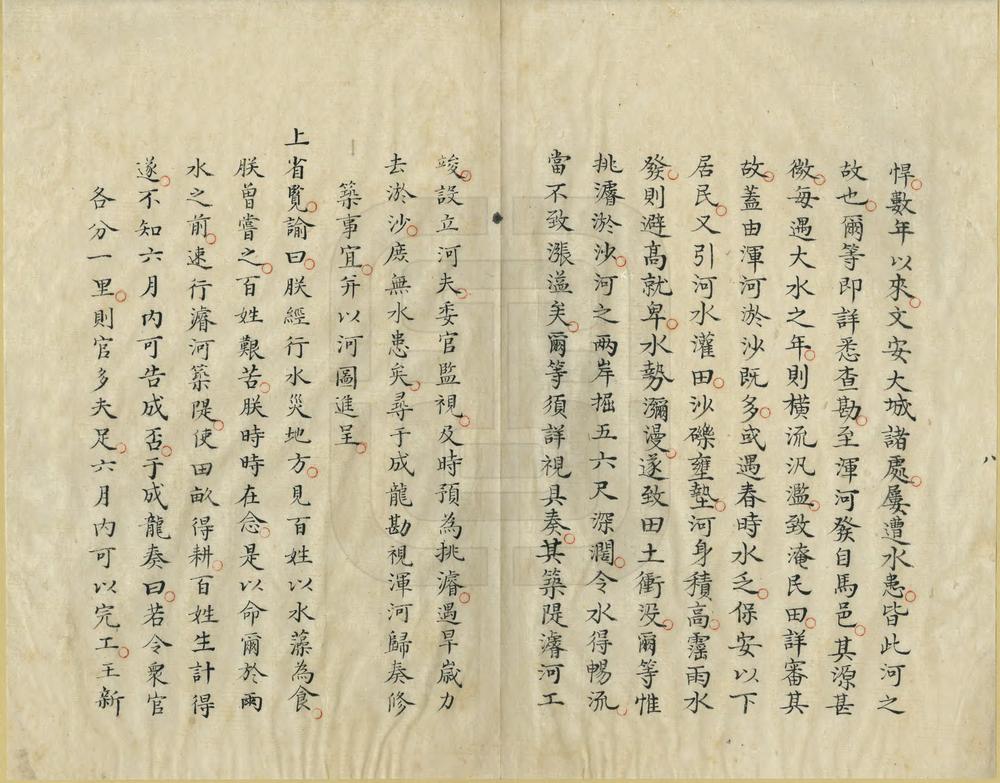 悍數年以來文安大城諸處屢遭水患皆此河之
故也爾等即詳悉查勘至渾河發自馬邑其源甚
微每遇大水之年則橫流汎濫致淹民田詳審其
故蓋由渾河淤沙既多或遇春時水乏保安以下
居民又引河水灌田沙磧壅墊河身積高霪雨水
發則避高就卑水勢瀰漫遂致田土衝没爾等惟
挑濬淤沙河之兩岸掘五六尺深濶令水得暢流
當不致漲溢矣爾等須詳視具奏其築隄濬河工
竣設立河夫委官監視及時預為挑濬遇旱歲力
去淤沙庶無水患矣尋于成龍勘視渾河歸奏修
築事宜并以河圖進呈
上省覽諭曰朕經行水災地方見百姓以水藻為食
朕曾嘗之百姓艱苦朕時時在念是以命爾於雨
水之前速行濬河築隄使田畝得耕百姓生計得
遂不知六月內可告成否于成龍奏曰若令衆官
各分一里則官多夫足六月內可以完工王新
八